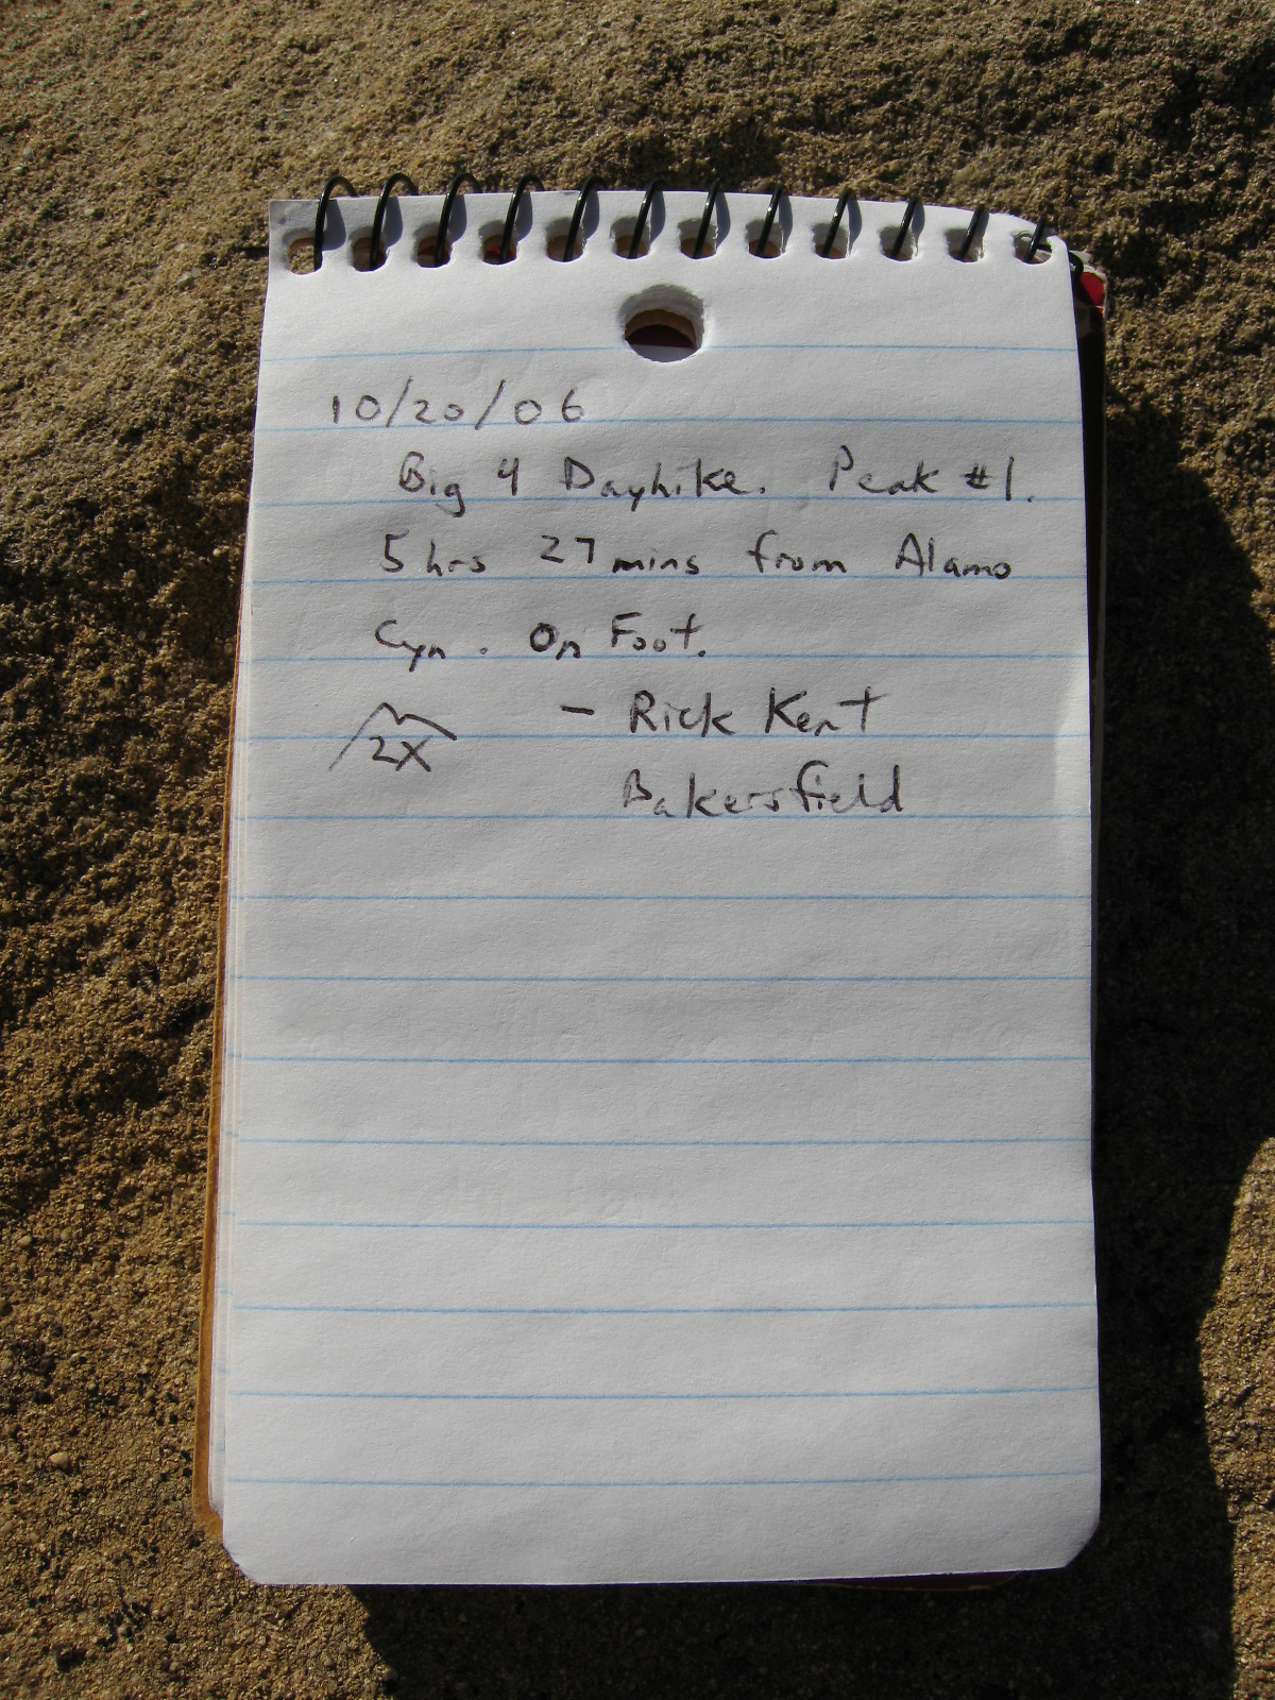 10/20/06
Big 4 Dayhike. Peak #1.
5hrs 27mins from Alamo
Cyn. On Foot.
2X - Rick Kent
Bakersfield